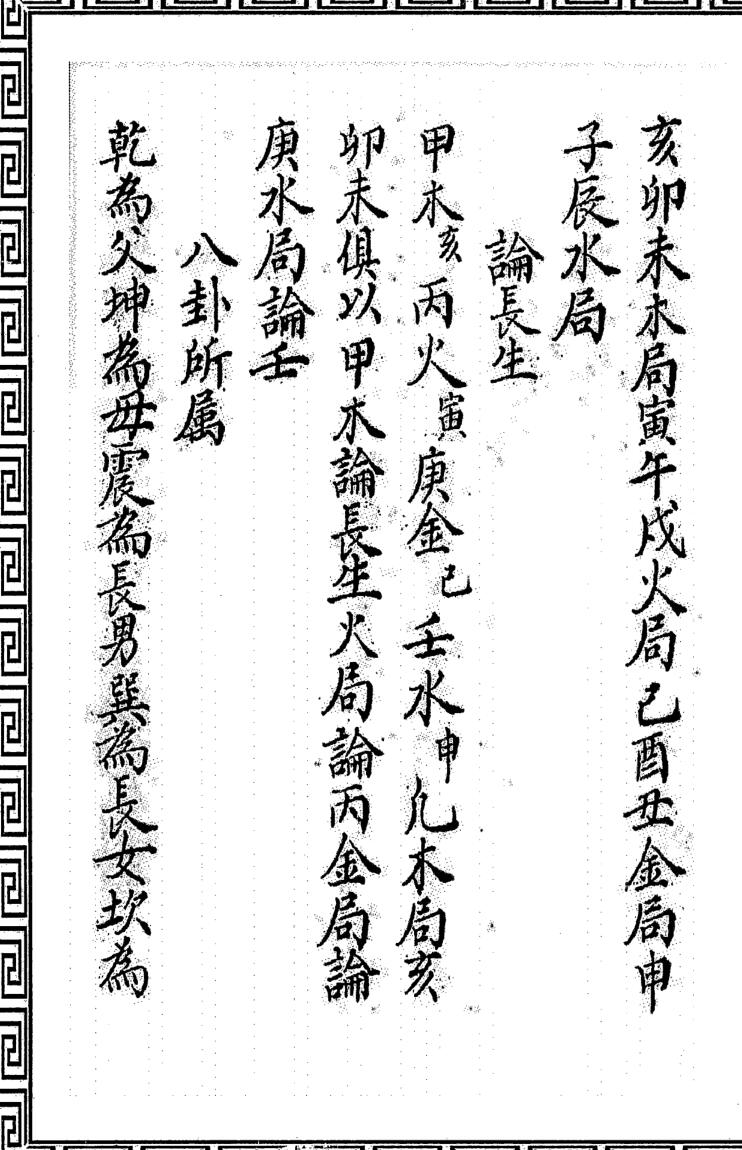 亥卯未木局寅午戌火局巳酉丑金局申
子辰水局
論長生
甲木亥丙火寅庚金巳壬水申凡木局亥
卯未俱以甲木論長生火局論丙金局論
庚水局論壬
八卦所属
乾為父坤為母震為長男巽為長女坎為